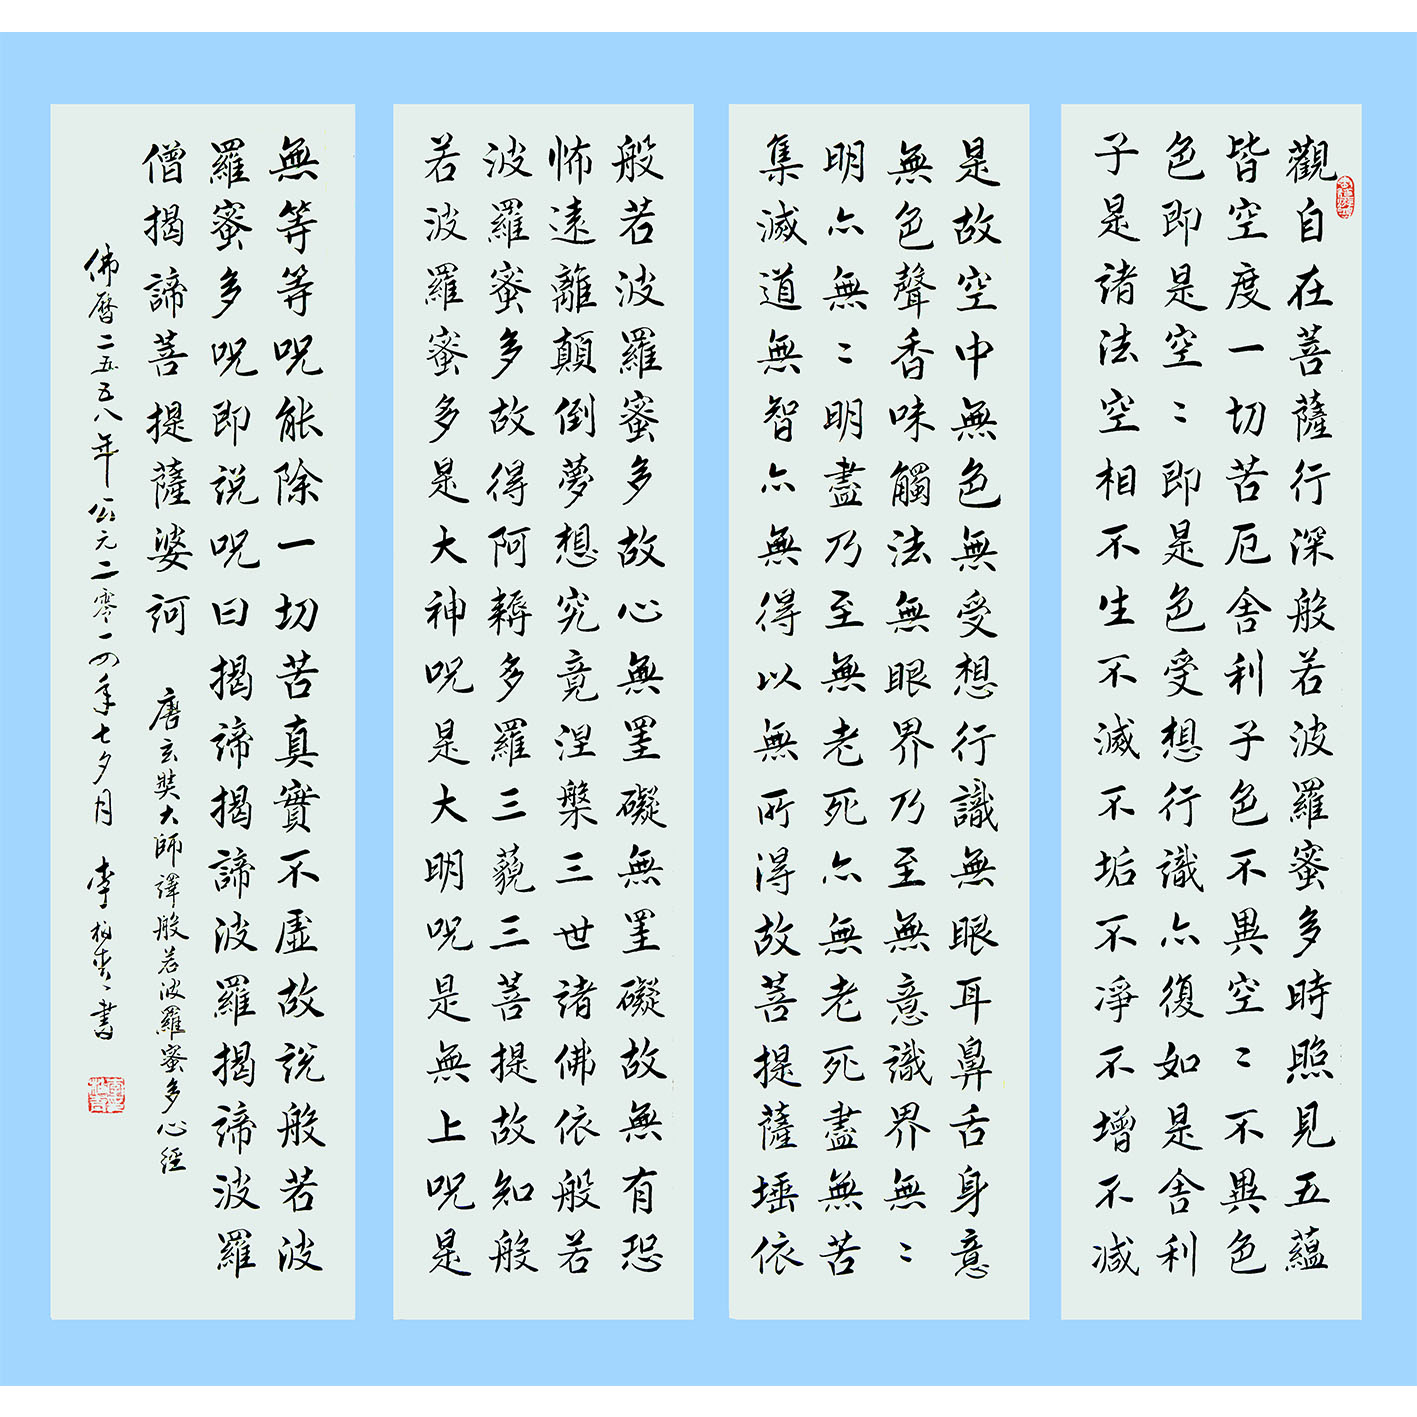 觀自在菩薩行深般若波羅蜜多時照見五蘊
皆空度一切苦厄舍利子色不異空〻不異色
色即是空〻即是色受想行識亦復如是舍利
子是諸法空相不生不滅不垢不凈不增不減
是故空中無色無受想行識無眼耳鼻舌身意
無色聲香味觸法無眼界乃至無意識界無〻
明亦無〻明盡乃至無老死亦無老死盡無苦
集滅道無智亦無得以無所得故菩提薩埵依
般若波羅蜜多故心無罣礙無罣礙故無有恐
怖遠離顛倒夢想究竟涅槃三世諸佛依般若
波羅蜜多故得阿耨多羅三藐三菩提故知般
若波羅蜜多是大神呪是大明呪是無上呪是
無等等呪能除一切苦真實不虛故説般若波
羅蜜多呪即説呪曰揭諦揭諦波羅揭諦波羅
僧揭諦菩提薩婆訶
唐玄奘大師譯般若波羅蜜多心經
佛曆二五五八年公元二零一四年七夕月 李柏青書